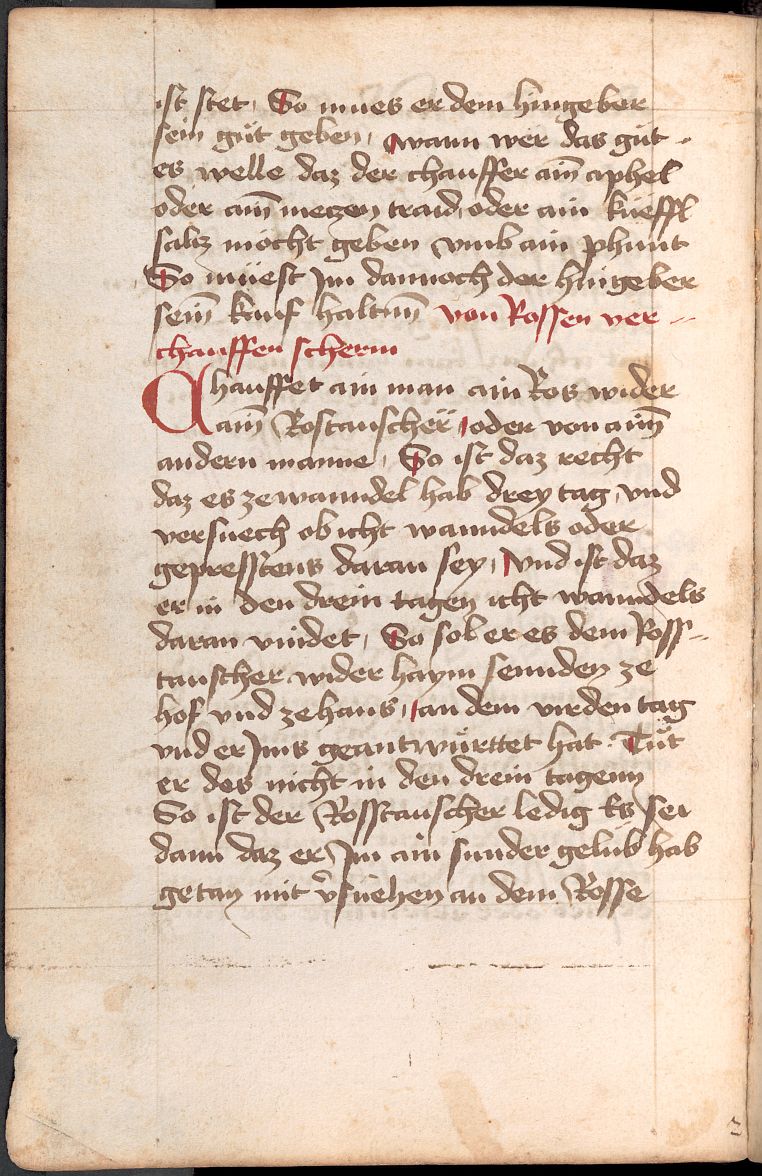 ist stet, So mues er dem hingeber
sein guͤt geben, wann wer das guͤt -
es welle daz der chauffer aīn aphel
oder aim̄ meczen traid, oder ain kueffl
salcz mocht geben vmb ain phunt
So muͤest Im dannoch der hingeber
seīn kauf haltnn̄ von Rossen ver -
chauffen scherm
Chauffet ain man ain Ros wider
aīn Rostauscher, oder von aīm
andern manne, So ist daz recht
daz es ze wanndel hab drey tag, vnd
versuech ob icht wanndels oder
gepresstens daran sey, Vnd ist daz
er in den drein tagen icht wanndels
daran vindet, So sol er es dem Ross-
tauscher wider haym sennden ze
hof vnd ze haus, an dem virden tag
vnd er Ims geantwuͤrttet hat. Tuͤt
er des nicht in den drein tagenn
So ist der Rosstauscher ledig Es sei
dann daz er Im ain sunder gelub hab
getan mit v̉suehen an dem Rosse